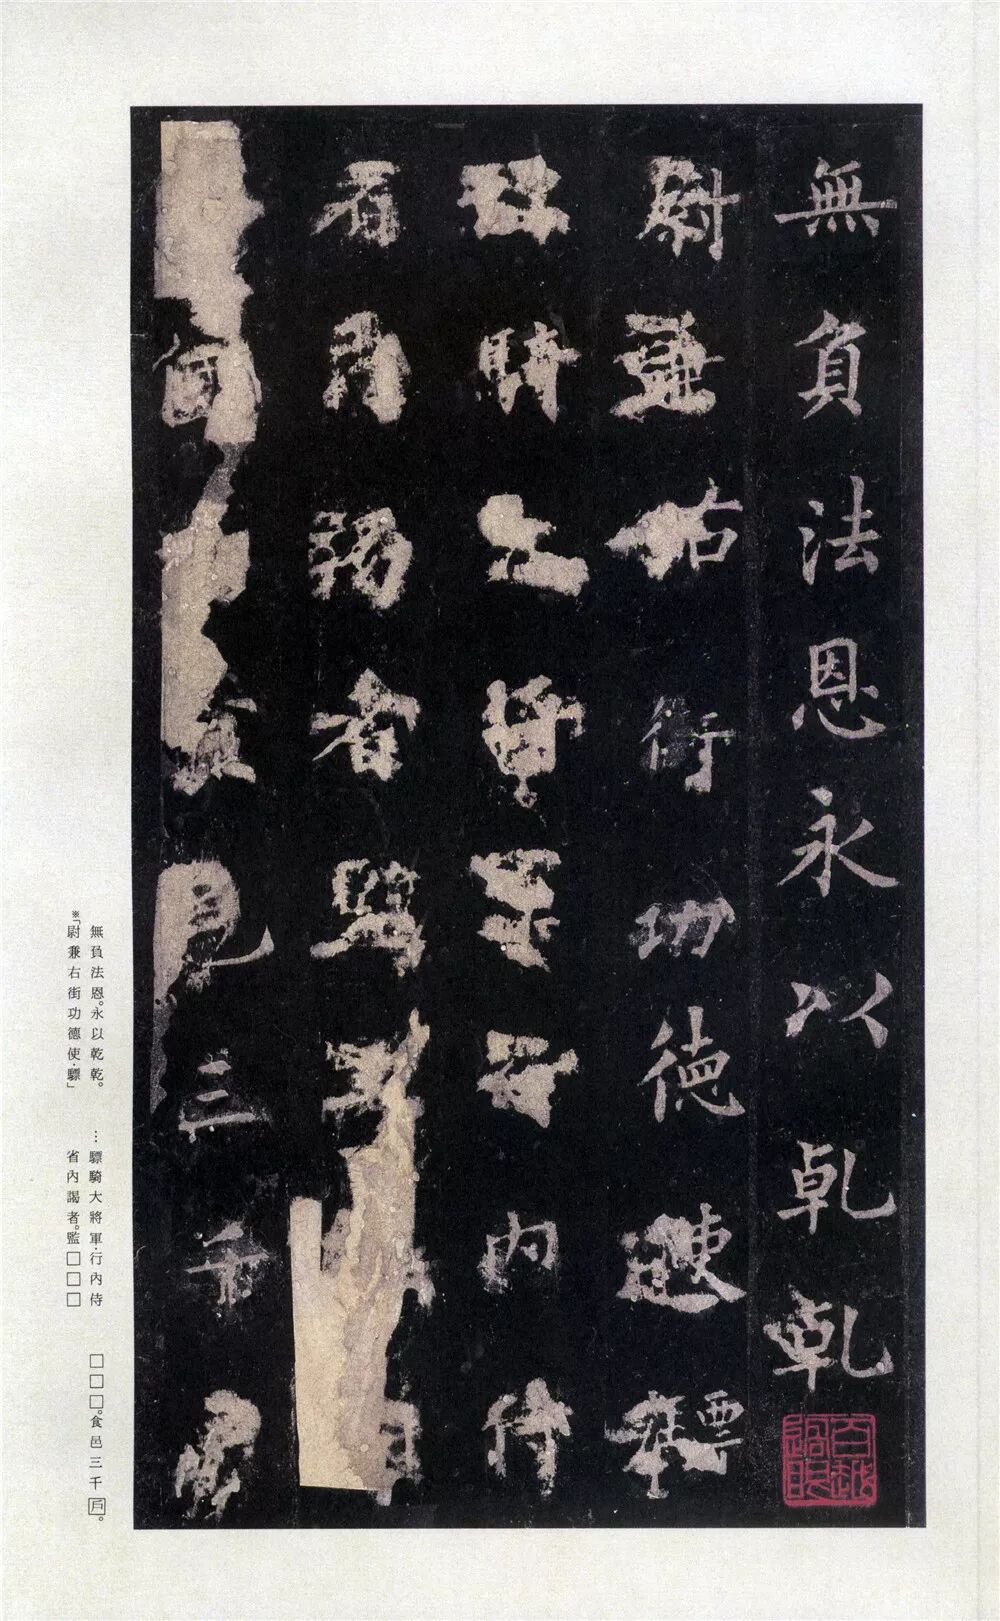 無負法恩永以乾乾
尉兼右街功德使驃
騎大將軍行內侍
省內謁者監
食邑三千
百越過眼
無負法恩。永以乾乾。
※「尉兼右街功德使·驃」
…驃騎大將軍·行內侍
省內謁者。監□□□
□□□。食邑三千戶。